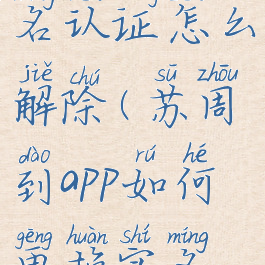 名认证怎么
jiě chú sū zhōu
解除(苏周
dào rú hé
到app如何
gēng huàn shí míng
更换实名